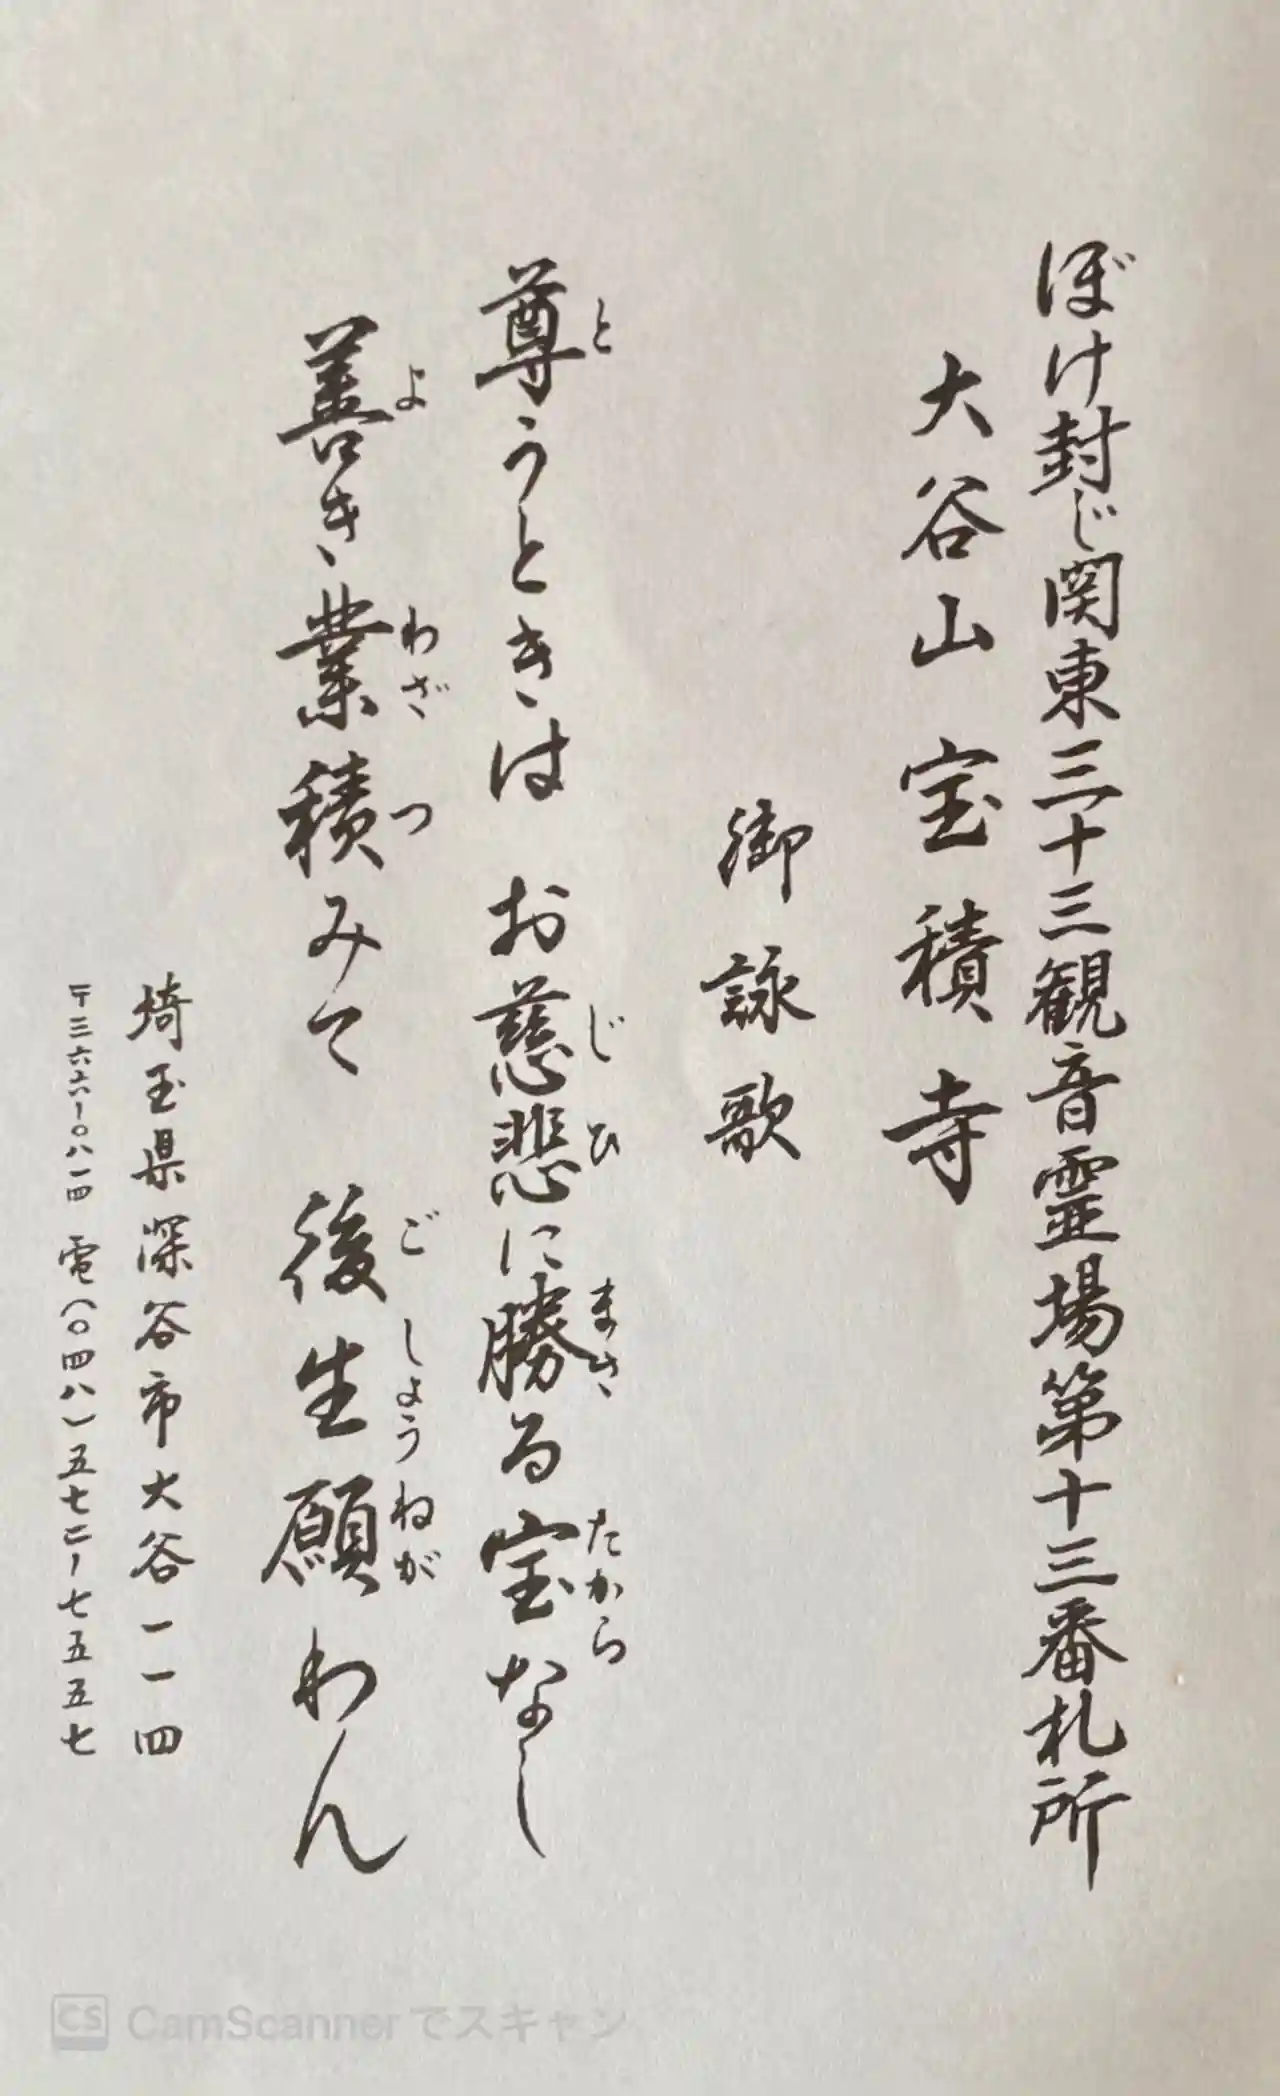 ぼけ封じ関東三十三観音霊場第十三番札所
大谷山宝積寺
御詠歌
尊うときは お慈悲に勝る宝なし
と じひ まさ たから
善き業積みて 後生願わん
よ わざ つ ごしょうねが
埼玉県深谷市大谷一一四
〒三六六ー〇八一四 電(〇四八)五七二ー七五五七
CS CamScannerでスキャン